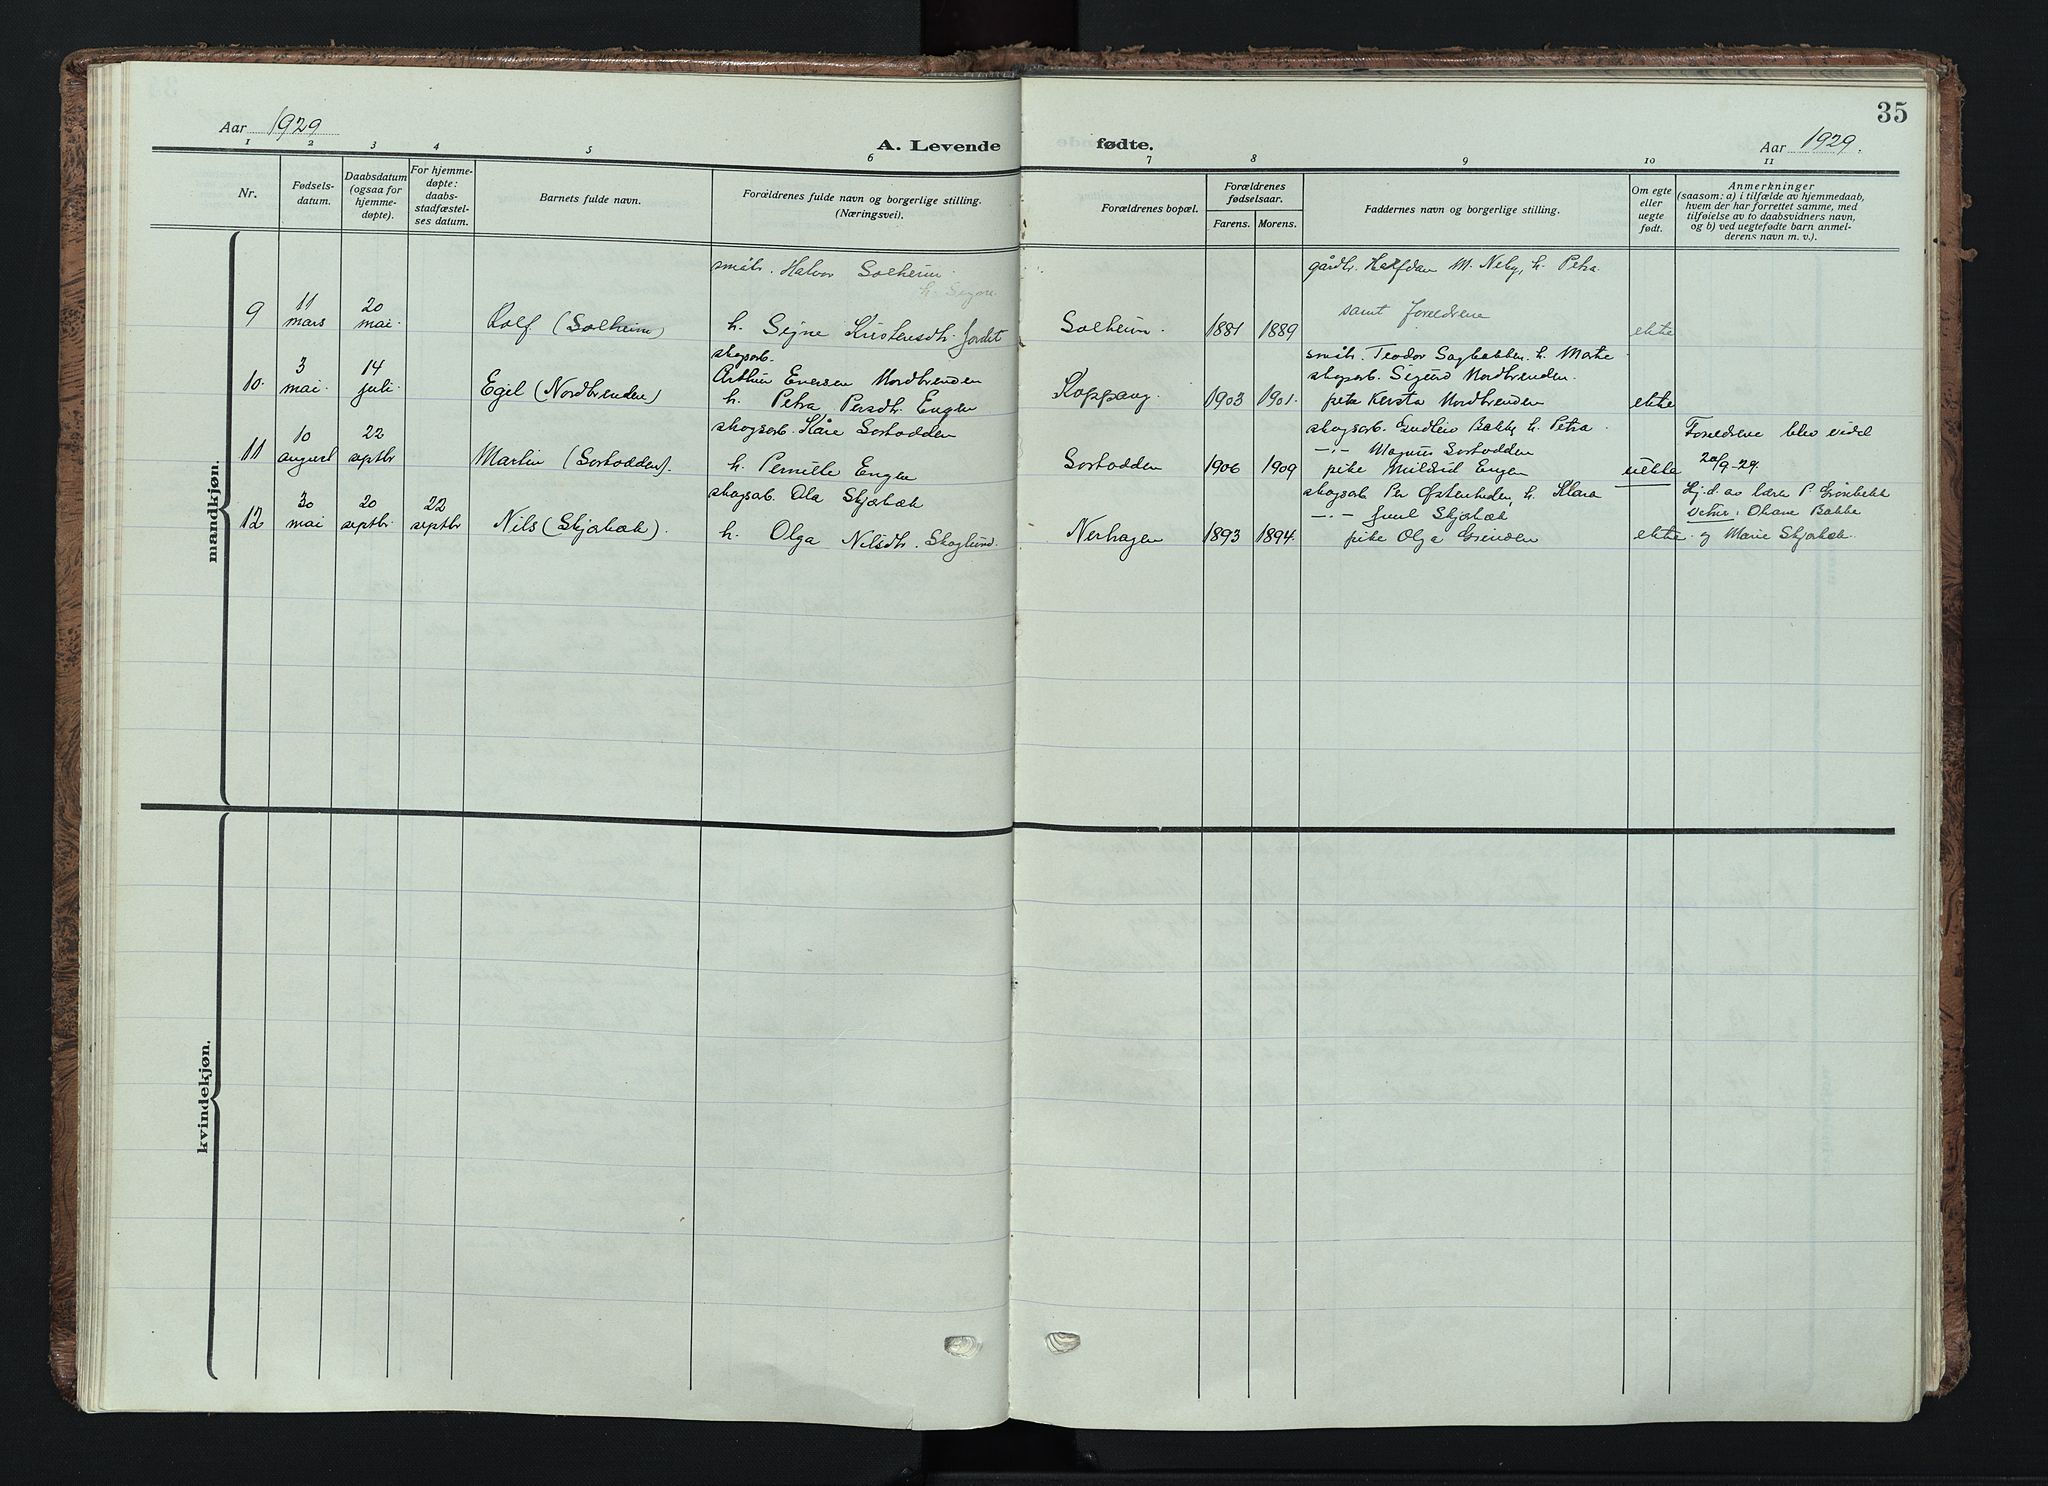 35
Aar 1929
A. Levende fødte.
Aar 1929.
1 2 3 4 5 6 7 8 9 10 11
Nr.
Fødsels-
datum.
Daabsdatum
(ogsaa for
hjemme-
døpte).
For hjemme-
døpte:
daabs-
stadfæstel-
ses datum.
Barnets fulde navn.
Forældrenes fulde navn og borgerlige stilling.
(Næringsvei).
Forældrenes bopæl.
Forældrenes
fødselsaar.
Farens. Morens.
Faddernes navn og borgerlige stilling.
Om egte
eller
uegte
født.
Anmerkninger
(saasom: a) i tilfælde av hjemmedaab,
hvem der har forrettet samme, med
tilføielse av to daabsvidners navn,
og b) ved uegtefødte barn anmel-
derens navn m. v.).
mandkjøn.
9
11
mars
20
mai
Rolf (Solheim)
småbr. Halvor Solheim
h. Signe
h. Signe Kristensdtr. Jordet
Solheim
1881 1889
gårdbr. Halfdan M. Neby, h. Petra
samt foreldrene
ekte
10.
3
mai
14
juli
Egil (Nordbrenden)
skogsarb.
Arthur Eversen Nordbrenden
h. Petra Persdtr. Engen
Koppang
1903 1901.
småbr. Teodor Sagbakken, h. Marte
skogsarb. Sigurd Nordbrenden.
pike Kersta Nordbrenden
ekte
11
10
august
22
septbr
Martin (Sorkodden).
skogsarb. Kåre Sorkodden
h. Pernille Engen
Sorkodden
1906 1909
skogsarb. Gudleiv Bakke h. Petra
-"- Magnus Sorkodden
pike Mildrid Engen
uekte
Foreldrene blev viet
20/9-29.
12
30
mai
20
septbr.
22
septbr
Nils (Skjærbæk).
skogsarb. Ola Skjærbæk
h. Olga Nilsdtr. Skoglund.
Nerhagen
1893 1894.
skogsarb Per Østenheden, h. Klara
-"- Juul Skjærbæk
pike Olga Grinden
ekte
Hj.d. av lærer P. Grönbekk
Vidner: Oline Bakke
og Marie Skjærbæk.
kvindekjøn.